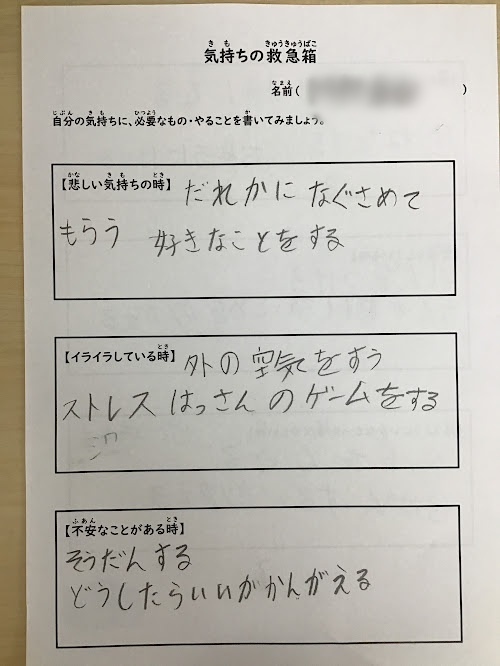 気持ちの救急箱
名前( )
自分の気持ちに、必要なもの・やることを書いてみましょう。
【悲しい気持ちの時】 だれかに なぐさめて
もらう 好きなことをする
【イライラしている時】 外の空気をすう
ストレスはっさんのゲームをする
【不安なことがある時】
そうだんする
どうしたらいいがかんがえる